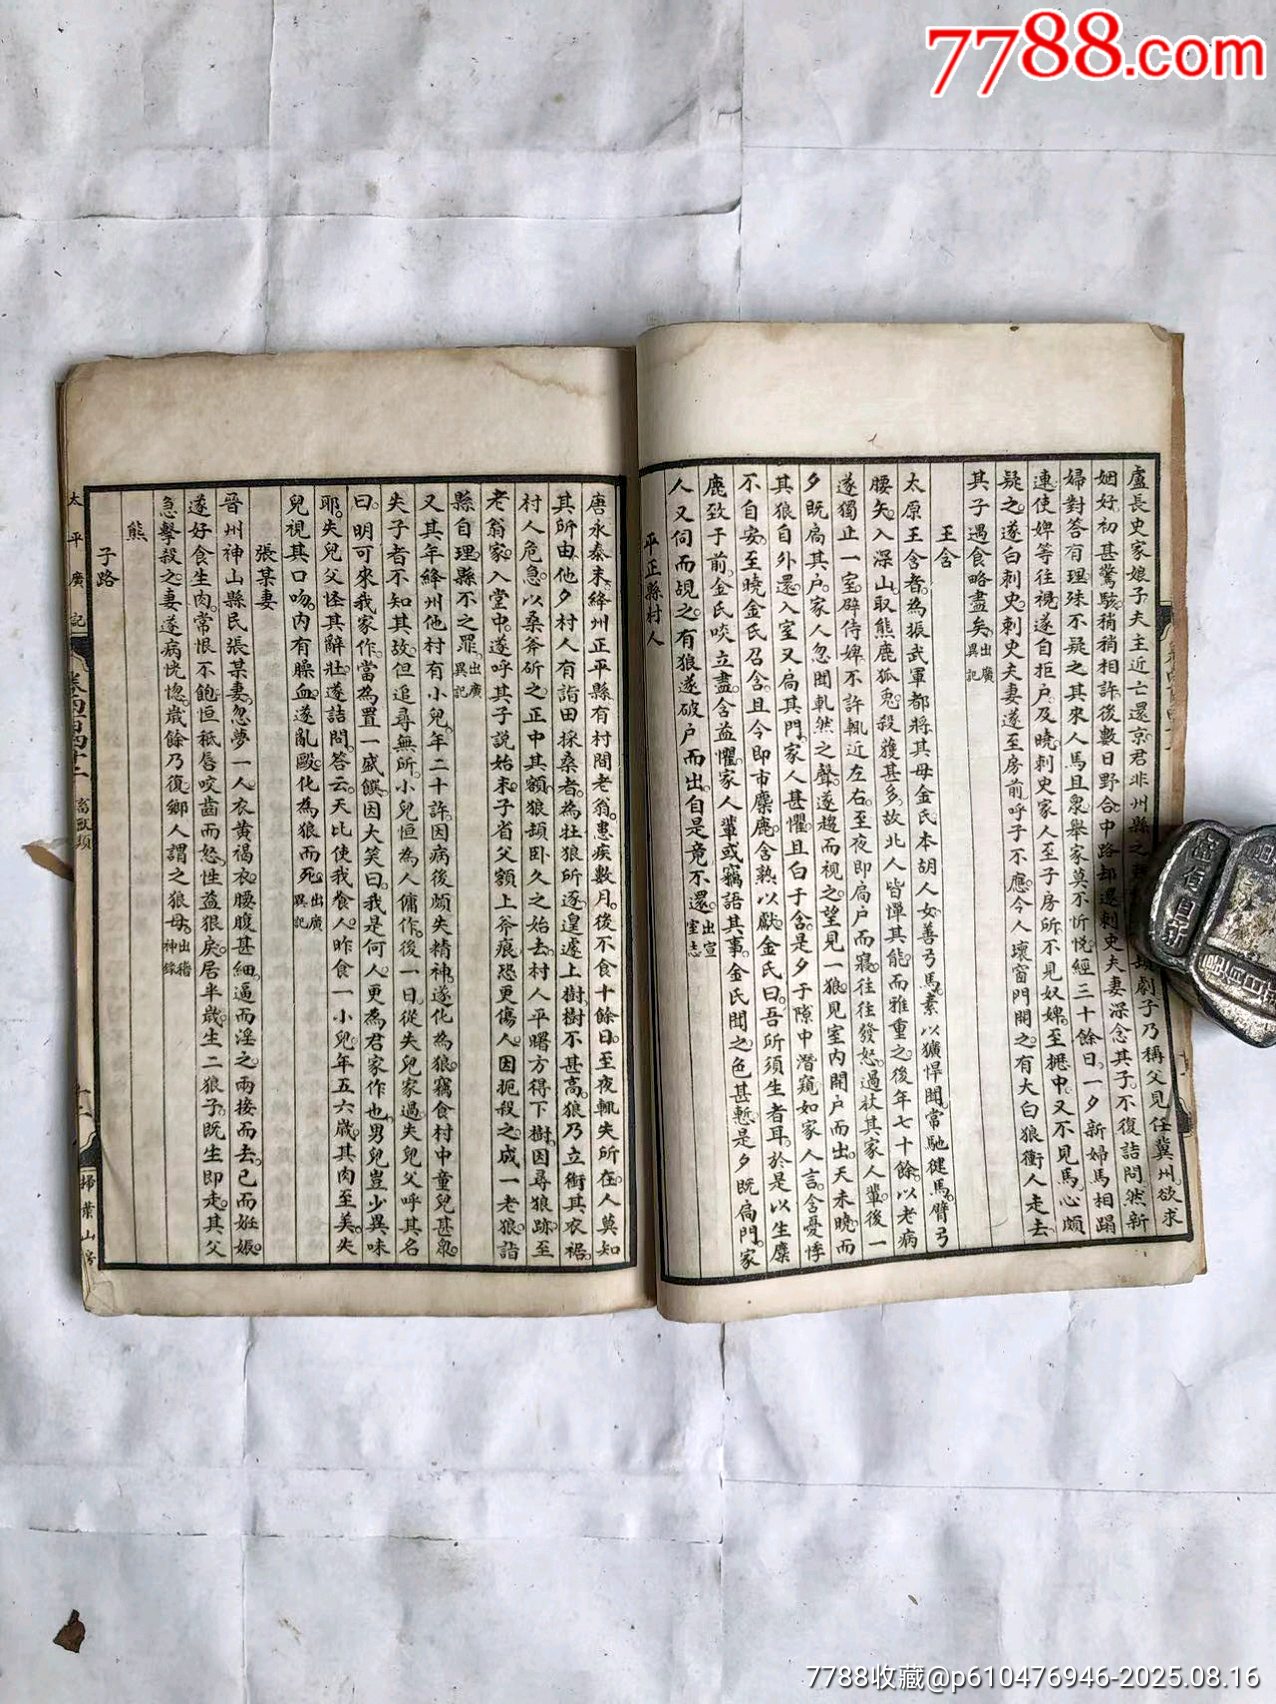 7788.com
盧長史家娘子夫主近亡還京君非州縣之
劇子乃稱父見任冀州欲求
姻好初甚驚駭稍稍相許後數日野合中路却還刺史夫妻深念其子不復詰問然新
婦對答有理殊不疑之其來人馬且衆舉家莫不忻悅經三十餘日一夕新婦馬相蹋
連使婢等往視遂自拒戶及曉刺史家人至子房所不見奴婢至櫪中又不見馬心頗
疑之遂白刺史刺史夫妻遂至房前呼子不應令人壞窗門開之有大白狼衝人走去
其子遇食略盡矣出廣異記
王含
太原王含者為振武軍都將其母金氏本胡人女善弓馬素以獷悍聞常馳健馬臂弓
腰矢入深山取熊鹿狐兎殺獲甚多故北人皆憚其能而雅重之後年七十餘以老病
遂獨止一室辟侍婢不許輒近左右至夜即扃戶而寢往往發怒過杖其家人輩後一
夕既扃其戶家人忽聞軋然之聲遂趨而視之望見一狼見室內開戶而出天未曉而
其狼自外還入室又扃其門家人甚懼且白于含是夕于隙中潛窺如家人言含憂悸
不自安至曉金氏召含且令即市麋鹿含熟以獻金氏曰吾所須生者耳於是以生麋
鹿致于前金氏啖立盡含益懼家人輩或竊語其事金氏聞之色甚慙是夕既扃門家
人又伺而覘之有狼遂破戶而出自是竟不還出宣室志
平正縣村人
唐永泰末絳州正平縣有村間老翁患疾數月後不食十餘日至夜輒失所在人莫知
其所由他夕村人有詣田採桑者為牡狼所逐遑遽上樹樹不甚高狼乃立銜其衣裾
村人危急以桑斧斫之正中其額狼頓臥久之始去村人平曙方得下樹因尋狼跡至
老翁家入堂中遂呼其子說始末子省父額上斧痕恐更傷人因扼殺之成一老狼詣
縣自理縣不之罪出廣異記
又其年絳州他村有小兒年二十許因病後頗失精神遂化為狼竊食村中童兒甚衆
失子者不知其故但追尋無所小兒恒為人傭作後一日從失兒家過失兒父呼其名
曰明可來我家作當為置一盛饌因大笑曰我是何人更為君家作也男兒豈少異味
耶失兒父怪其辭壯遂詰問答云天比使我食人昨食一小兒年五六歲其肉至美失
兒視其口吻內有臊血遂亂毆化為狼而死出廣異記
張某妻
晉州神山縣民張某妻忽夢一人衣黃褐衣腰腹甚細逼而淫之兩接而去已而妊娠
遂好食生肉常恨不飽恒舐唇咬齒而怒性益狠戾居半歲生二狼子既生即走其父
急擊殺之妻遂病恍惚歲餘乃復鄉人謂之狼母出稽神錄
熊
子路
太平廣記
卷四百四十二
畜獸類
十二
掃葉山房
7788收藏@p610476946-2025.08.16